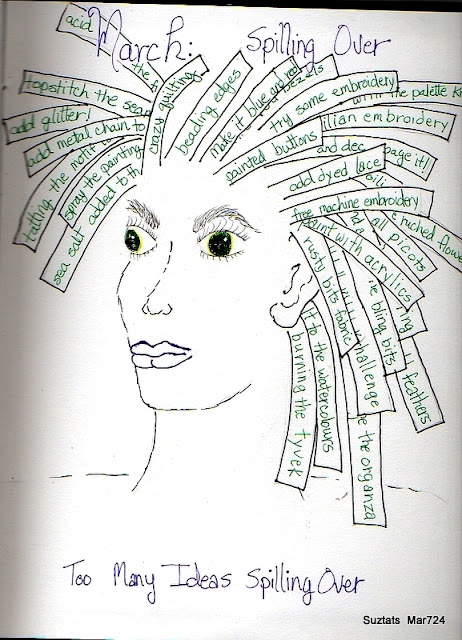 March: Spilling Over
acid
the
quilting
crazy
topstitch the sea
add glitter!
add metal chain to
tatting the motif
spray the painting
sea salt added to th
beading edges
make it blue and red
try some embroidery
with the palette
ilian embroidery
painted buttons
and dec
page it!
add dyed lace
free machine embroidery
ruched flowe
all picots
paint with acrylics
rusty bits fabric
e bling bits
challenge
feathers
it to the watercolours
burning the tyvek
e the organza
Too Many Ideas Spilling Over
Suztats Mar724